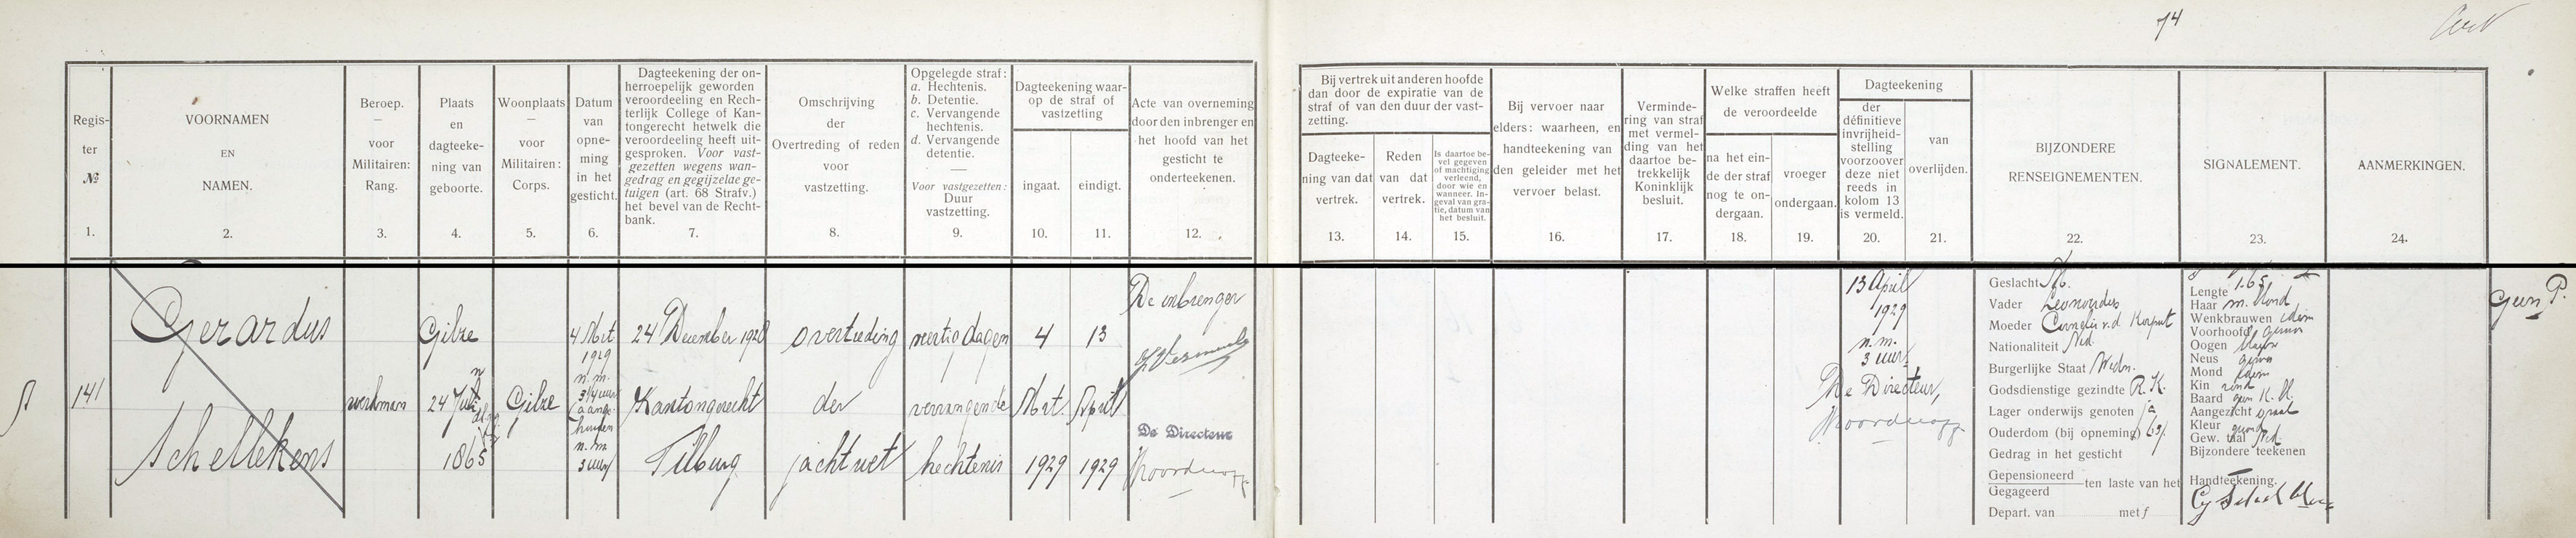 74
Regis-
ter
№
1.
VOORNAMEN
EN
NAMEN.
2.
Beroep.
—
voor
Militairen:
Rang.
3.
Plaats
en
dagteeke-
ning van
geboorte.
4.
Woonplaats
—
voor
Militairen:
Corps.
5.
Datum
van
opne-
ming
in het
gesticht.
6.
Dagteekening der on-
herroepelijk geworden
veroordeeling en Rech-
terlijk College of Kan-
tongerecht hetwelk die
veroordeeling heeft uit-
gesproken. Voor vast-
gezetten wegens wan-
gedrag en gegijzelae ge-
tuigen (art. 68 Strafv.)
het bevel van de Recht-
bank.
7.
Omschrijving
der
Overtreding of reden
voor
vastzetting.
8.
Opgelegde straf:
a. Hechtenis.
b. Detentie.
c. Vervangende
hechtenis.
d. Vervangende
detentie.
—
Voor vastgezetten:
Duur
vastzetting.
9.
Dagteekening waar-
op de straf of
vastzetting
ingaat.
10.
eindigt.
11.
Acte van overneming
door den inbrenger en
het hoofd van het
gesticht te
onderteekenen.
12.
Bij vertrek uit anderen hoofde
dan door de expiratie van de
straf of van den duur der vast-
zetting.
Dagteeke-
ning van dat
vertrek.
13.
Reden
van dat
vertrek.
14.
Is daartoe be-
vel gegeven
of machtiging
verleend,
door wie en
wanneer. In-
geval van gra-
tie, datum van
het besluit.
15.
Bij vervoer naar
elders: waarheen, en
handteekening van
den geleider met het
vervoer belast.
16.
Verminde-
ring van straf
met vermel-
ding van het
daartoe be-
trekkelijk
Koninklijk
besluit.
17.
Welke straffen heeft
de veroordeelde
na het ein-
de der straf
nog te on-
dergaan.
18.
vroeger
ondergaan.
19.
Dagteekening
der
définitieve
invrijheid-
stelling
voorzoover
deze niet
reeds in
kolom 13
is vermeld.
20.
van
overlijden.
21.
BIJZONDERE
RENSEIGNEMENTEN.
22.
SIGNALEMENT.
23.
AANMERKINGEN.
24.
141
Gerardus
Schellekens
werkman
Gilze
24 Juli
1865
Gilze
4 Mrt
1929
n.m.
3 1/4 uur
n.m.
3 uur
24 December 1928
Kantongerecht
Tilburg
overtreding
der
jachtwet
veertig dagen
vervangende
hechtenis
4
Mrt.
1929
13
April
1929
De inbrenger
De Directeur
13 April
1929
n.m.
3 uur
De Directeur,
Geslacht M.
Vader Leonardus
Moeder Cornelia v.d. Korput
Nationaliteit Ned.
Burgerlijke Staat Wedn.
Godsdienstige gezindte R.K.
Lager onderwijs genoten ja
Ouderdom (bij opneming) 63
Gedrag in het gesticht
Gepensioneerd
Gegageerd
ten laste van het
Depart. van met f
Lengte 1.65
Haar m. blond
Wenkbrauwen idem
Voorhoofd gewoon
Oogen blauw
Neus gewoon
Mond
Kin rond
Baard geen K.U.
Aangezicht ovaal
Kleur gezond
Gew. taal Ned.
Bijzondere teekenen
Handteekening.
Geen P.